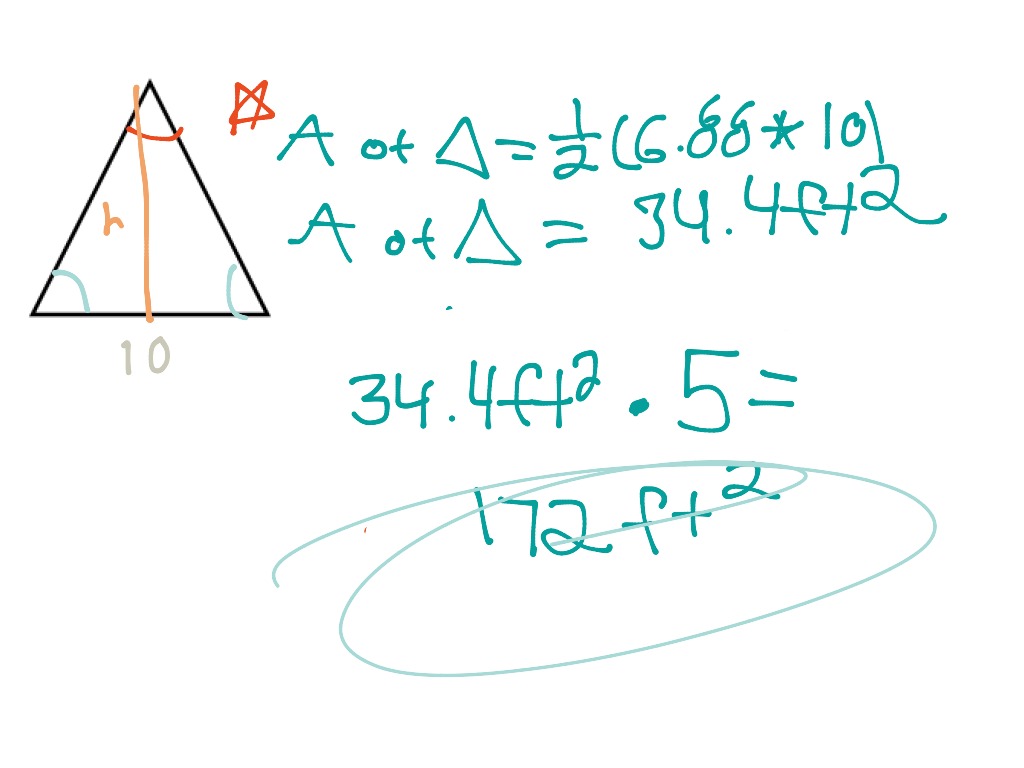 A of Δ = 1/2 (6.88 * 10)
h
A of Δ = 34.4ft²
10
34.4ft² · 5 =
172 ft²